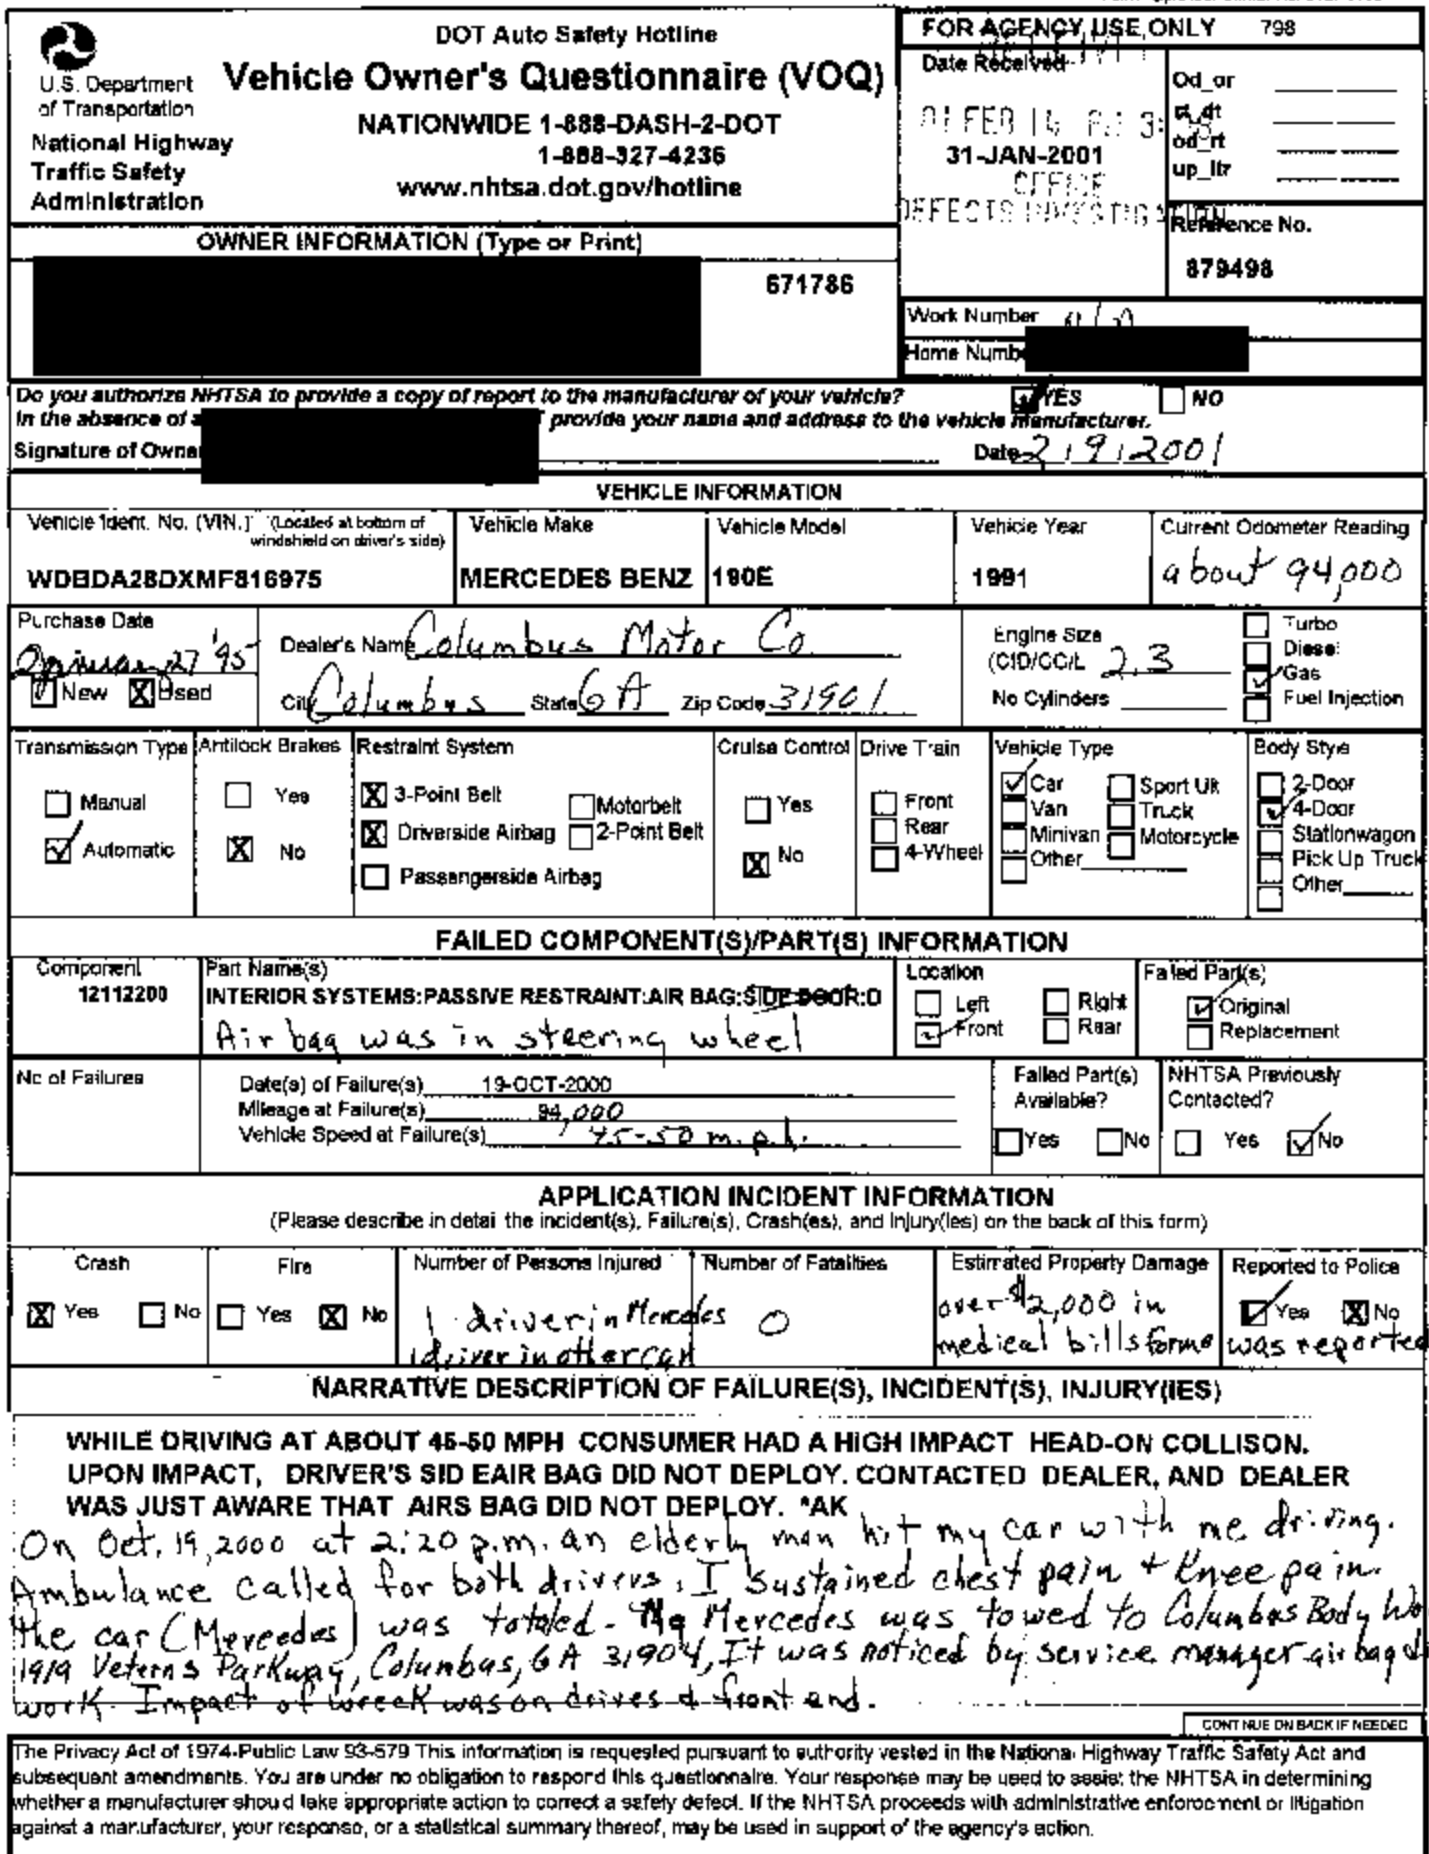 DOT Auto Safety Hotline
Vehicle Owner's Questionnaire (VOQ)
NATIONWIDE 1-888-DASH-2-DOT
1-888-327-4236
www.nhtsa.dot.gov/hotline
U.S. Department
of Transportation
National Highway
Traffic Safety
Administration
FOR AGENCY USE ONLY 798
Date Received
31-JAN-2001
OFFICE
DEFECTS INVESTIGATION
Od_or
rt_dt
od_rt
up_ltr
Reference No.
879498
OWNER INFORMATION (Type or Print)
671786
Work Number
Home Numb
Do you authorize NHTSA to provide a copy of report to the manufacturer of your vehicle? YES NO
In the absence of a provide your name and address to the vehicle manufacturer.
Signature of Owne Date 2 / 9 / 2001
VEHICLE INFORMATION
Vehicle Ident. No. (VIN.) (Located at bottom of windshield on driver's side)
WDBDA28DXMF816975
Vehicle Make
MERCEDES BENZ
Vehicle Model
190E
Vehicle Year
1991
Current Odometer Reading
about 94,000
Purchase Date
27 '95
New X Used
Dealer's Name Columbus Motor Co
City Columbus State GA Zip Code 31901
Engine Size
(CID/CC/L 2.3
No Cylinders
Turbo
Diesel
Gas
Fuel Injection
Transmission Type
Manual
Automatic
Antilock Brakes
Yes
X No
Restraint System
X 3-Point Belt
X Driverside Airbag
Passengerside Airbag
Motorbelt
2-Point Belt
Cruise Control
Yes
X No
Drive Train
Front
Rear
4-Wheel
Vehicle Type
Car
Van
Minivan
Other
Sport Ut
Truck
Motorcycle
Body Style
2-Door
4-Door
Stationwagon
Pick Up Truck
Other
FAILED COMPONENT(S)/PART(S) INFORMATION
Component
12112200
Part Name(s)
INTERIOR SYSTEMS:PASSIVE RESTRAINT:AIR BAG:SIDE DOOR:D
Air bag was in steering wheel
Location
Left
Front
Right
Rear
Failed Part(s)
Original
Replacement
No of Failures
Date(s) of Failure(s) 19-OCT-2000
Mileage at Failure(s) 94,000
Vehicle Speed at Failure(s) 45-50 m.p.h.
Failed Part(s)
Available?
Yes No
NHTSA Previously
Contacted?
Yes No
APPLICATION INCIDENT INFORMATION
(Please describe in detai the incident(s), Failure(s), Crash(es), and Injury(ies) on the back of this form)
Crash
X Yes No
Fire
Yes X No
Number of Persons Injured
1 driver in Mercedes
1 driver in other car
Number of Fatalities
0
Estimated Property Damage
over $2,000 in
medical bills for me
Reported to Police
Yes X No
was reported
NARRATIVE DESCRIPTION OF FAILURE(S), INCIDENT(S), INJURY(IES)
WHILE DRIVING AT ABOUT 45-50 MPH CONSUMER HAD A HIGH IMPACT HEAD-ON COLLISON.
UPON IMPACT, DRIVER'S SID EAIR BAG DID NOT DEPLOY. CONTACTED DEALER, AND DEALER
WAS JUST AWARE THAT AIRS BAG DID NOT DEPLOY. *AK
On Oct. 19, 2000 at 2:20 p.m. an elderly man hit my car with me driving.
Ambulance called for both drivers. I sustained chest pain + knee pain.
the car (Mercedes) was totaled. The Mercedes was towed to Columbus Body Wo
1919 Veterns Parkway, Columbus, GA 31904, It was noticed by service manager airbag
work. Impact of wreck was on drives & front end.
CONTINUE ON BACK IF NEEDED
The Privacy Act of 1974-Public Law 93-579 This information is requested pursuant to authority vested in the National Highway Traffic Safety Act and
subsequent amendments. You are under no obligation to respond this questionnaire. Your response may be used to assist the NHTSA in determining
whether a manufacturer should take appropriate action to correct a safety defect. If the NHTSA proceeds with administrative enforcement or litigation
against a manufacturer, your response, or a statistical summary thereof, may be used in support of the agency's action.